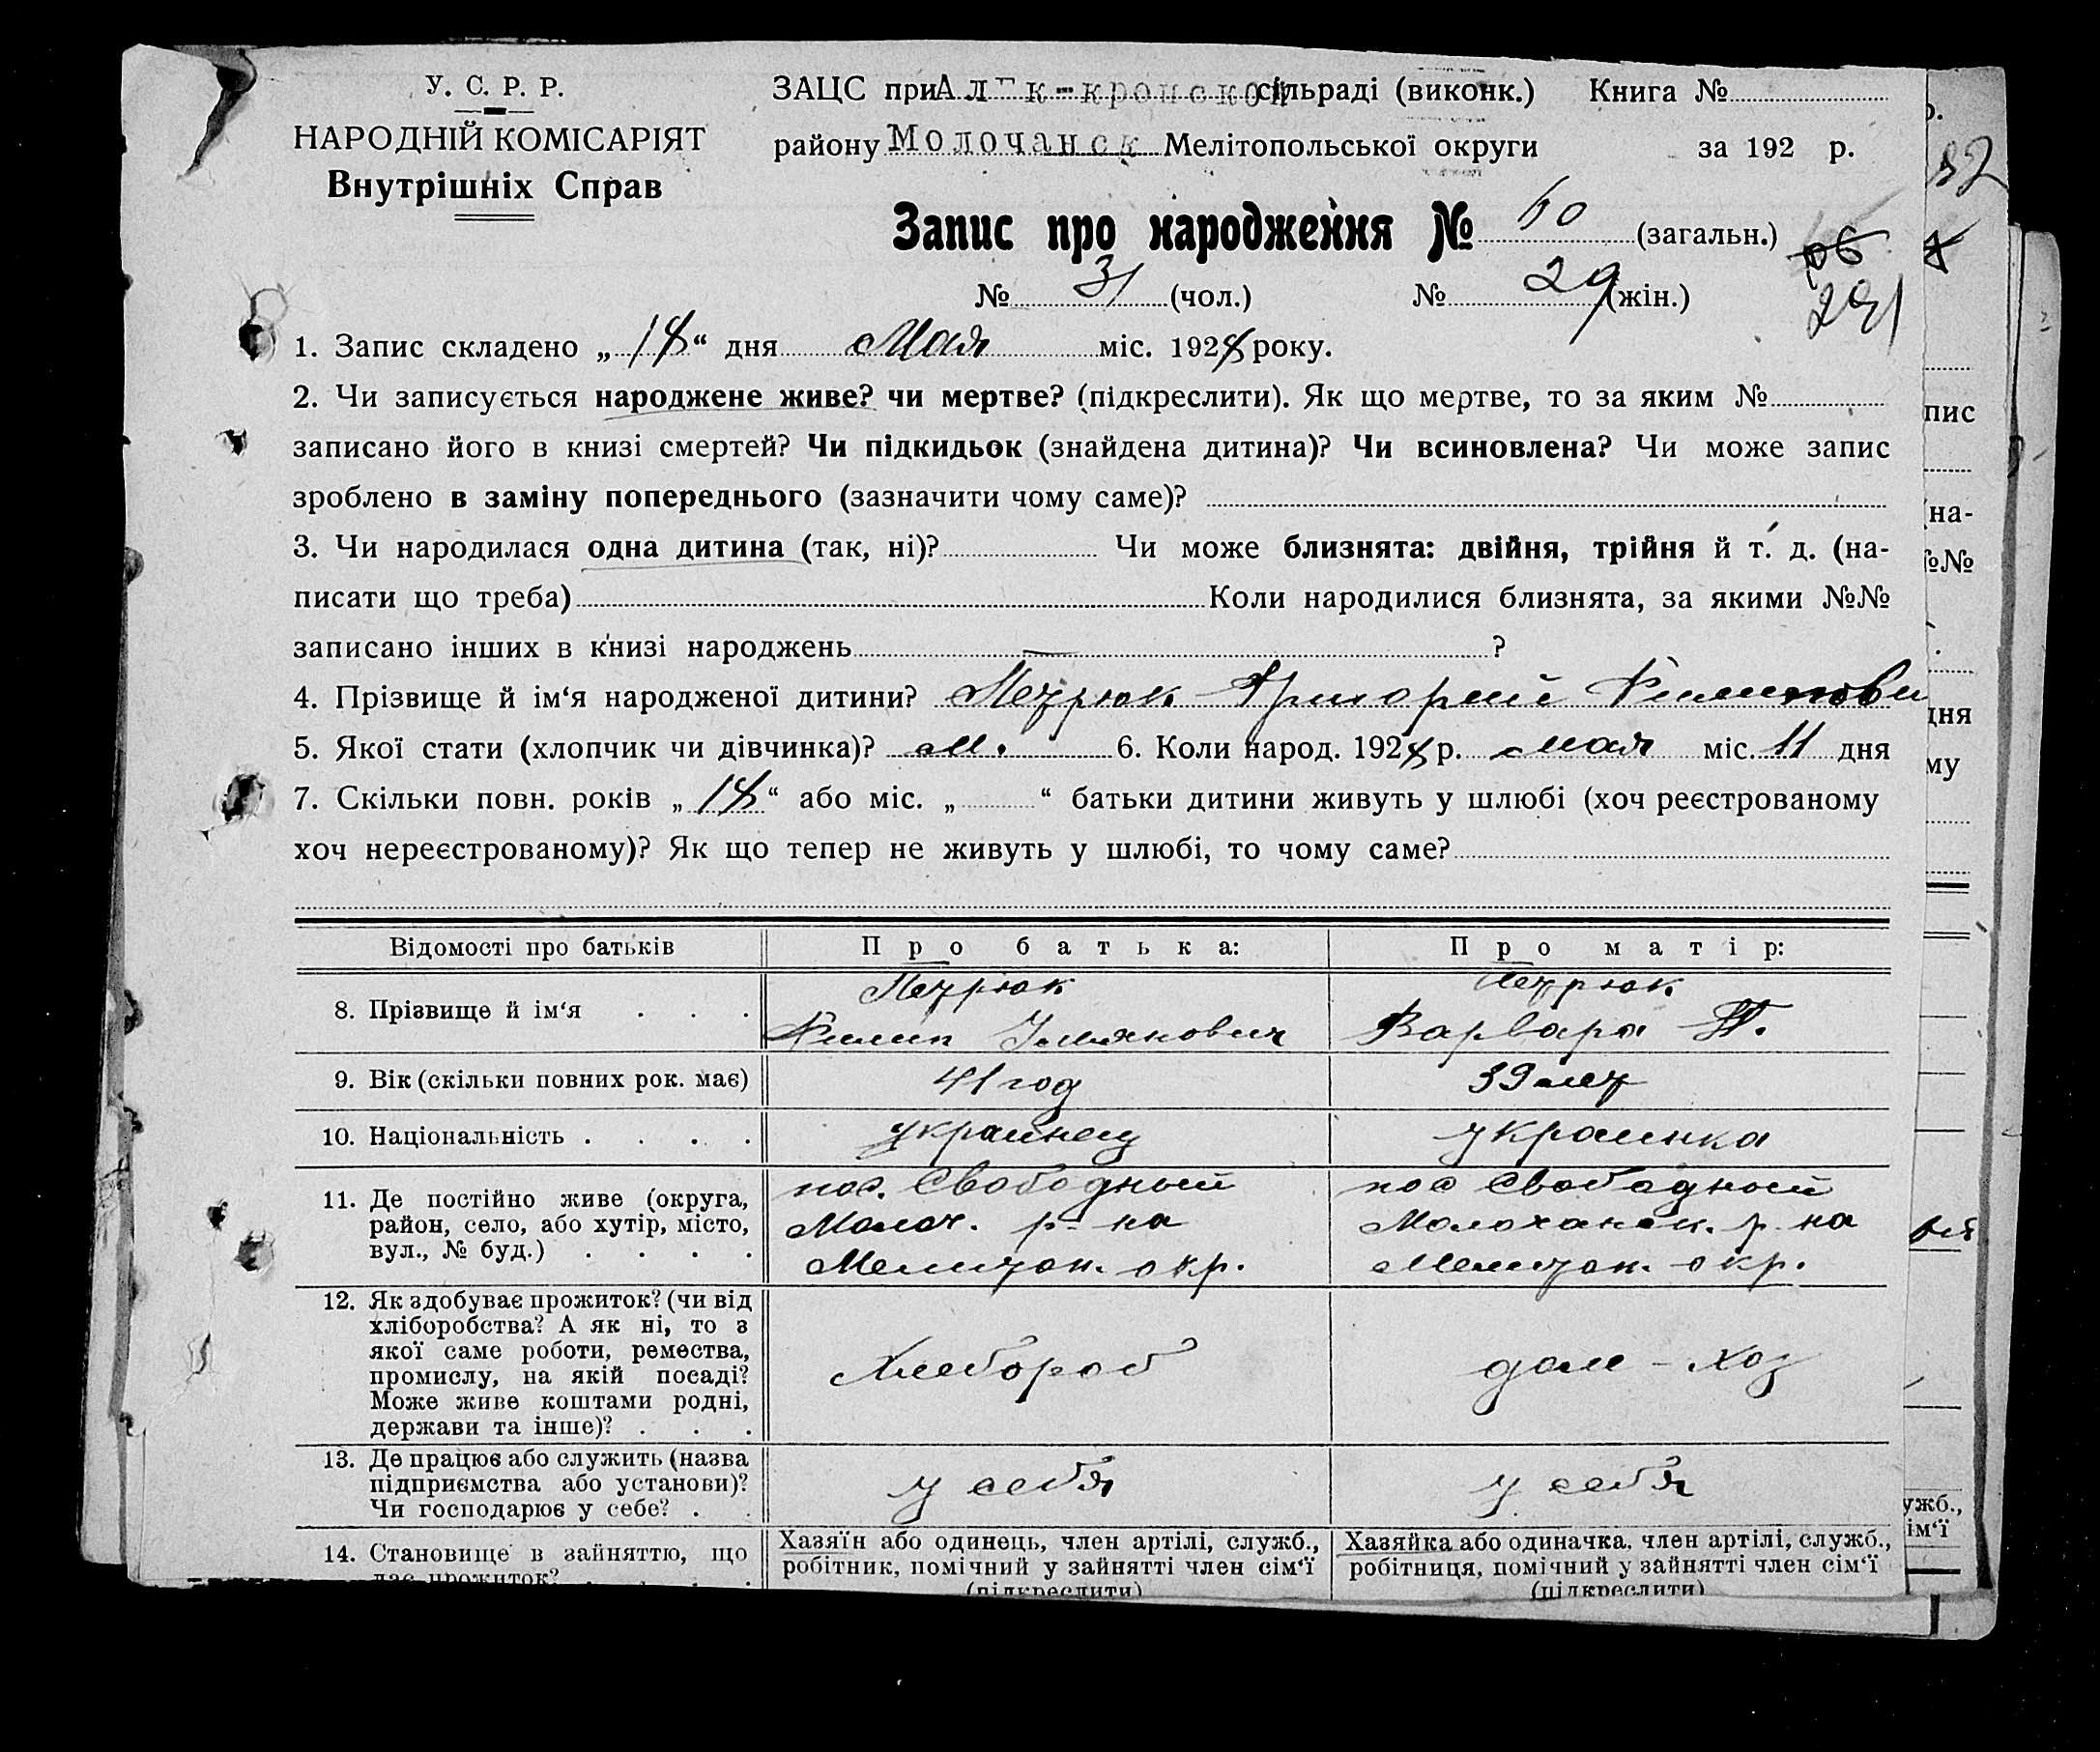 У. С. Р. Р.
НАРОДНІЙ КОМІСАРІЯТ
Внутрішніх Справ
ЗАЦС при сільраді (виконк.) Книга №
району Молочанск Мелітопольської округи за 192 р.
Запис про народження № 60 (загальн.)
№ 31 (чол.) № 29 (жін.)
291
1. Запис складено „18“ дня Мая міс. 1928 року.
2. Чи записується народжене живе? чи мертве? (підкреслити). Як що мертве, то за яким №
записано його в книзі смертей? Чи підкидьок (знайдена дитина)? Чи всиновлена? Чи може запис
зроблено в заміну попереднього (зазначити чому саме)?
3. Чи народилася одна дитина (так, ні)? Чи може близнята: двійня, трійня й т. д. (на-
писати що треба) Коли народилися близнята, за якими №№
записано інших в книзі народжень — ?
4. Прізвище й ім‘я народженої дитини? Григорий
5. Якої стати (хлопчик чи дівчинка)? м. 6. Коли народ. 1928 р. мая міс. 11 дня
7. Скільки повн. років „18“ або міс. „ “ батьки дитини живуть у шлюбі (хоч реєстрованому
хоч нереєстрованому)? Як що тепер не живуть у шлюбі, то чому саме?
Відомості про батьків
Про батька:
Про матір:
8. Прізвище й ім‘я . . .
Филип
Варвара П.
9. Вік (скільки повних рок. має)
41 год
39 лет
10. Національність . . . .
украинец
украинка
11. Де постійно живе (округа,
район, село, або хутір, місто,
вул., № буд.) . . . .
пос. Свободный
Молоч. р-на
Мелитоп. окр.
пос Свободный
Молочанск. р-на
Мелитоп. окр.
12. Як здобуває прожиток? (чи від
хліборобства? А як ні, то з
якої саме роботи, ремества,
промислу, на якій посаді?
Може живе коштами родні,
держави та інше)? . . .
Хлебороб
дом-хоз
13. Де працює або служить (назва
підприємства або установи)?
Чи господарює у себе? . .
у себя
у себя
14. Становище в зайняттю, що
дає прожиток? . . . .
Хазяїн або одинець, член артілі, служб.,
робітник, помічний у зайнятті член сім‘ї
(підкреслити)
Хазяйка або одиначка, член артілі, служб.,
робітниця, помічний у зайнятті член сім‘ї
(підкреслити)